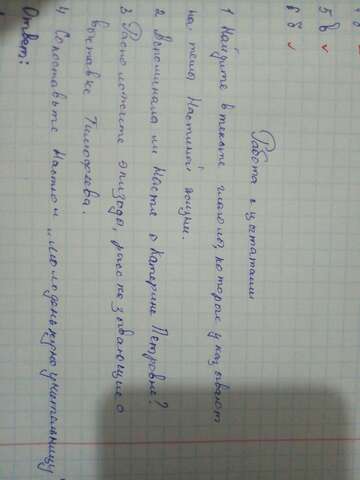 5 в
6 в
Работа с цитатами
1 Найдите в тексте глаголы, которые указывают
на темы Настиной жизни.
2 Вспоминала ли Настя о Катерине Петровне?
3 Расположите эпизоды, рассказывающие о
выставке Тимофеева.
4 Сопоставьте Настю и "молоденькую учительницу"
Ответ: